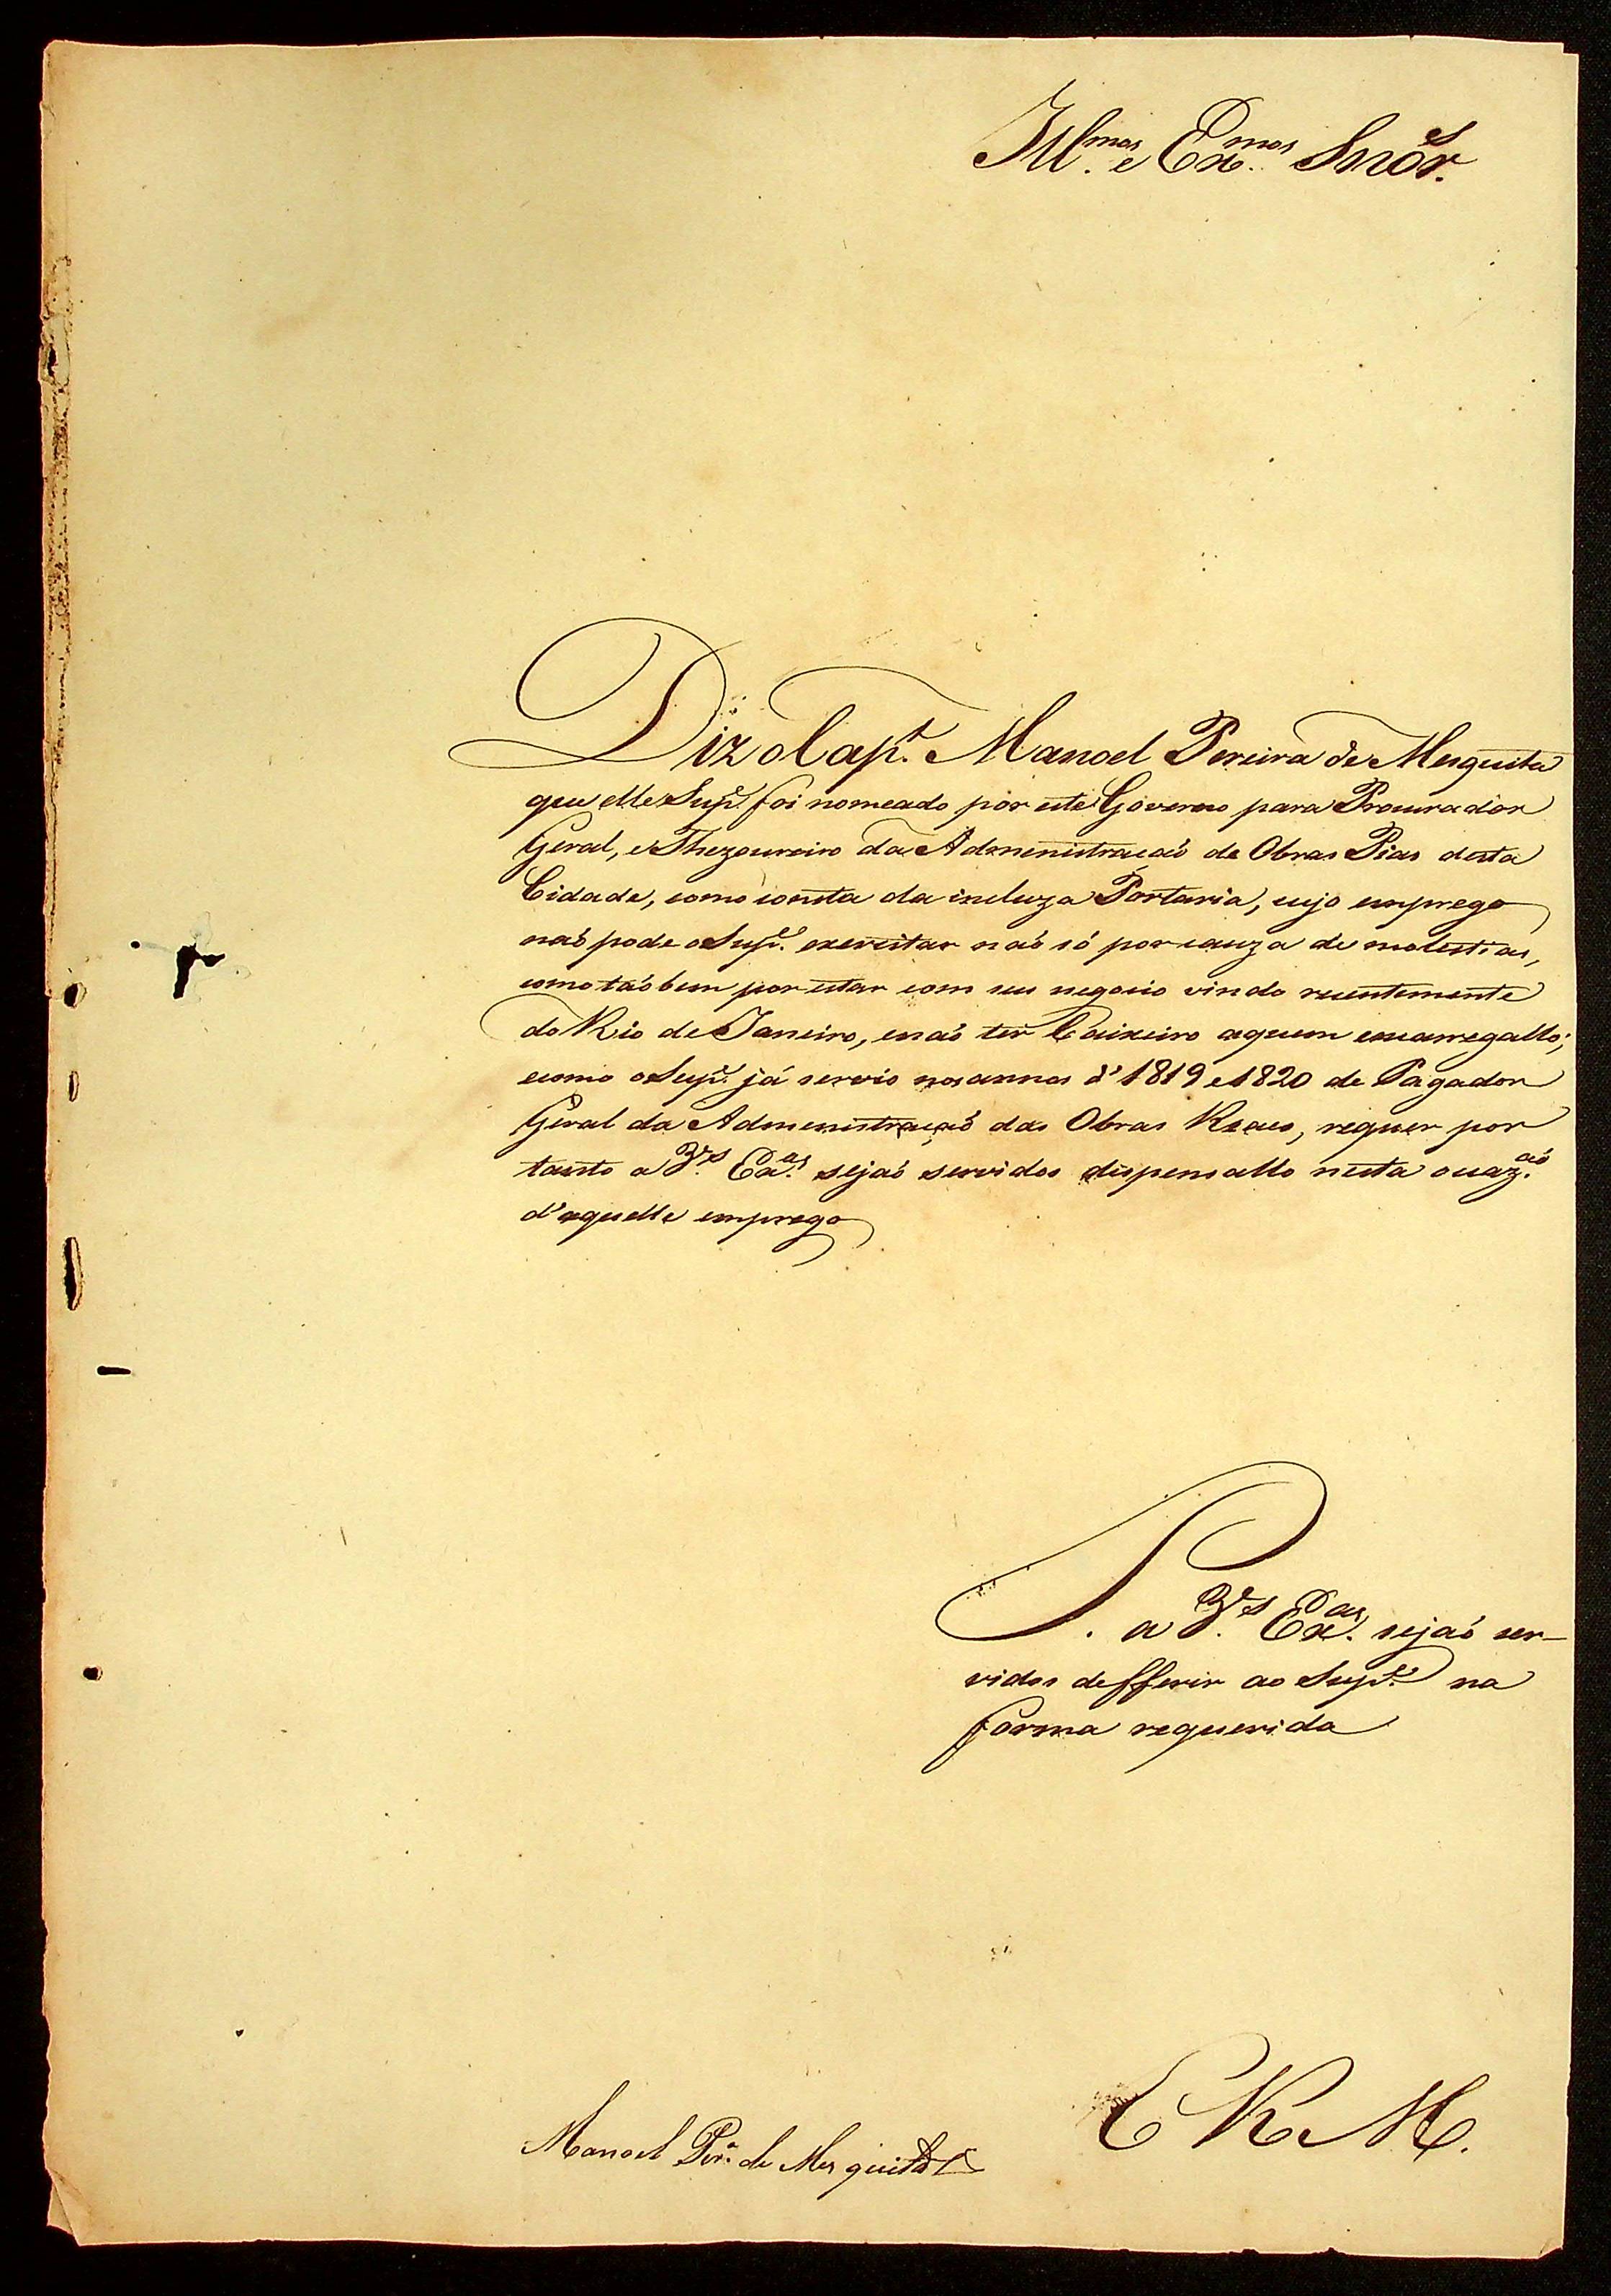 Ill.mos e Ex.mos Snr̃es.
Diz o Cap.t Manoel Pereira de Mesquita
que elle Sup.e foi nomeado por este Governo para Procurador
Geral, e Thezoureiro da Admenistracaõ de Obras Pias desta
Cidade, como consta da incluza Portaria, cujo emprego
naõ pode o Sup.e exercitar naõ só por cauza de molestias,
como taõbem por estar com seu negocio vindo recentemente
do Rio de Janeiro, e naõ ter Caixeiro aquem encarregallo;
e como o Sup.e já servio nos annos d'1819 e 1820 de Pagador
Geral da Admenistraçaõ das Obras Reaes, requer por
tanto a V.es Ex.as sejaõ servidos dispensallo nesta occaz.aõ
d'aquelle emprego
P. a V.es Ex.as sejaõ ser-
vidos defferir ao Sup.e na
forma requerida
E R M.
Manoel Per.a de Mesquita